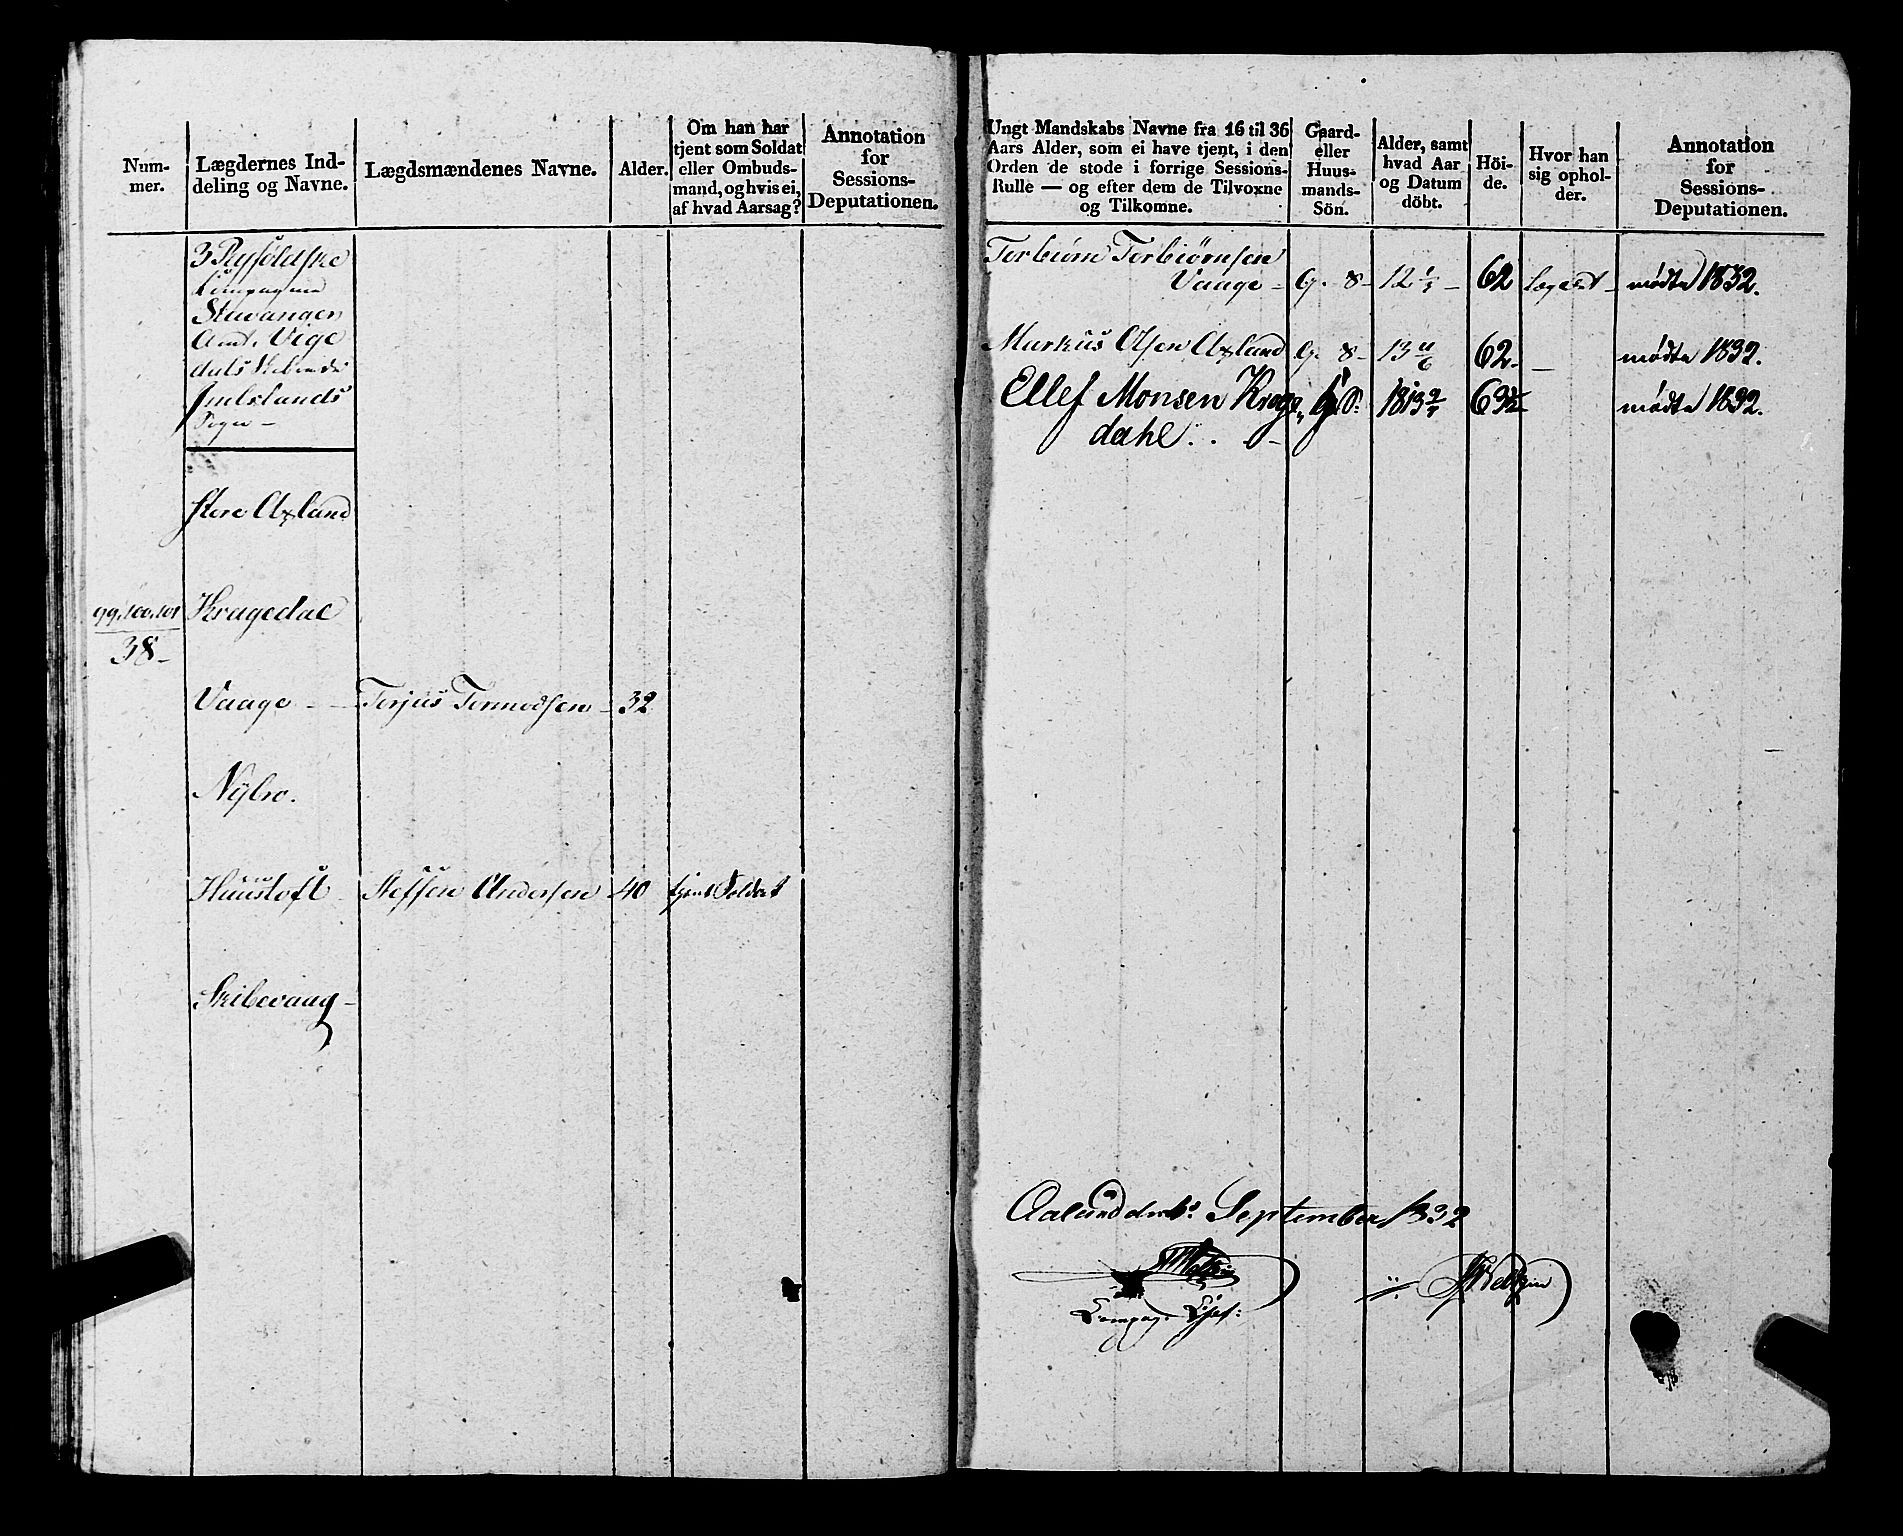 Num-
mer.
Lægdernes Ind-
deling og Navne.
Lægdsmændenes Navne.
Alder.
Om han har
tjent som Soldat
eller Ombuds-
mand, og hvis ei,
af hvad Aarsag?
Annotation
for
Sessions-
Deputationen.
3 Ryføldske
Compagnie
Stavanger
Amt. Vige
dals Skibrede
Imslands
Sogn -
Store Axland
99, 100, 101
38-
Kragedal
Vaage - - Torjus Tormodsen - 32
Nÿbro.
Huustoft Steffen Andersen - 40 tjent Soldat
Skibevaag -
Ungt Mandskabs Navne fra 16 til 36
Aars Alder, som ei have tjent, i den
Orden de stode i forrige Sessions-
Rulle — og efter dem de Tilvoxne
og Tilkomne.
Gaard-
eller
Huus-
mands-
Sön.
Alder, samt
hvad Aar
og Datum
döbt.
Höi-
de.
Hvor han
sig ophol-
der.
Annotation
for
Sessions-
Deputationen.
Torbiørn Torbiørnsen
Vaage - G. 8- 12 62 Lægdet - mødte 1832.
Markus Olsen Axland G. 8- 13 11/6 62. — mødte 1832.
Ellef Monsen Krage G. S. 1813 63½ mødte 1832.
dahl. . -
Aalund d September 1832
Compag. Chef: